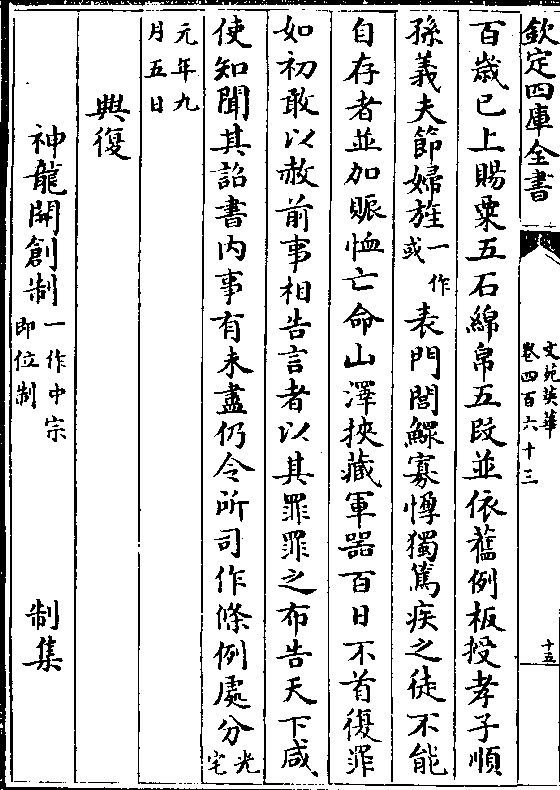 欽定四庫全書
文苑英華
卷四百六十三
十五
百歳已上賜粟五石綿帛五段並依舊例板授孝子順
孫義夫節婦旌一作或表門閭鰥寡惸獨篤疾之徒不能
自存者並加賑恤亡命山澤挾藏軍器百日不首復罪
如初敢以赦前事相告言者以其罪罪之布告天下咸
使知聞其詔書内事有未盡仍令所司作條例處分光宅
元年九月五日
興復
神龍開創制一作中宗即位制 制集